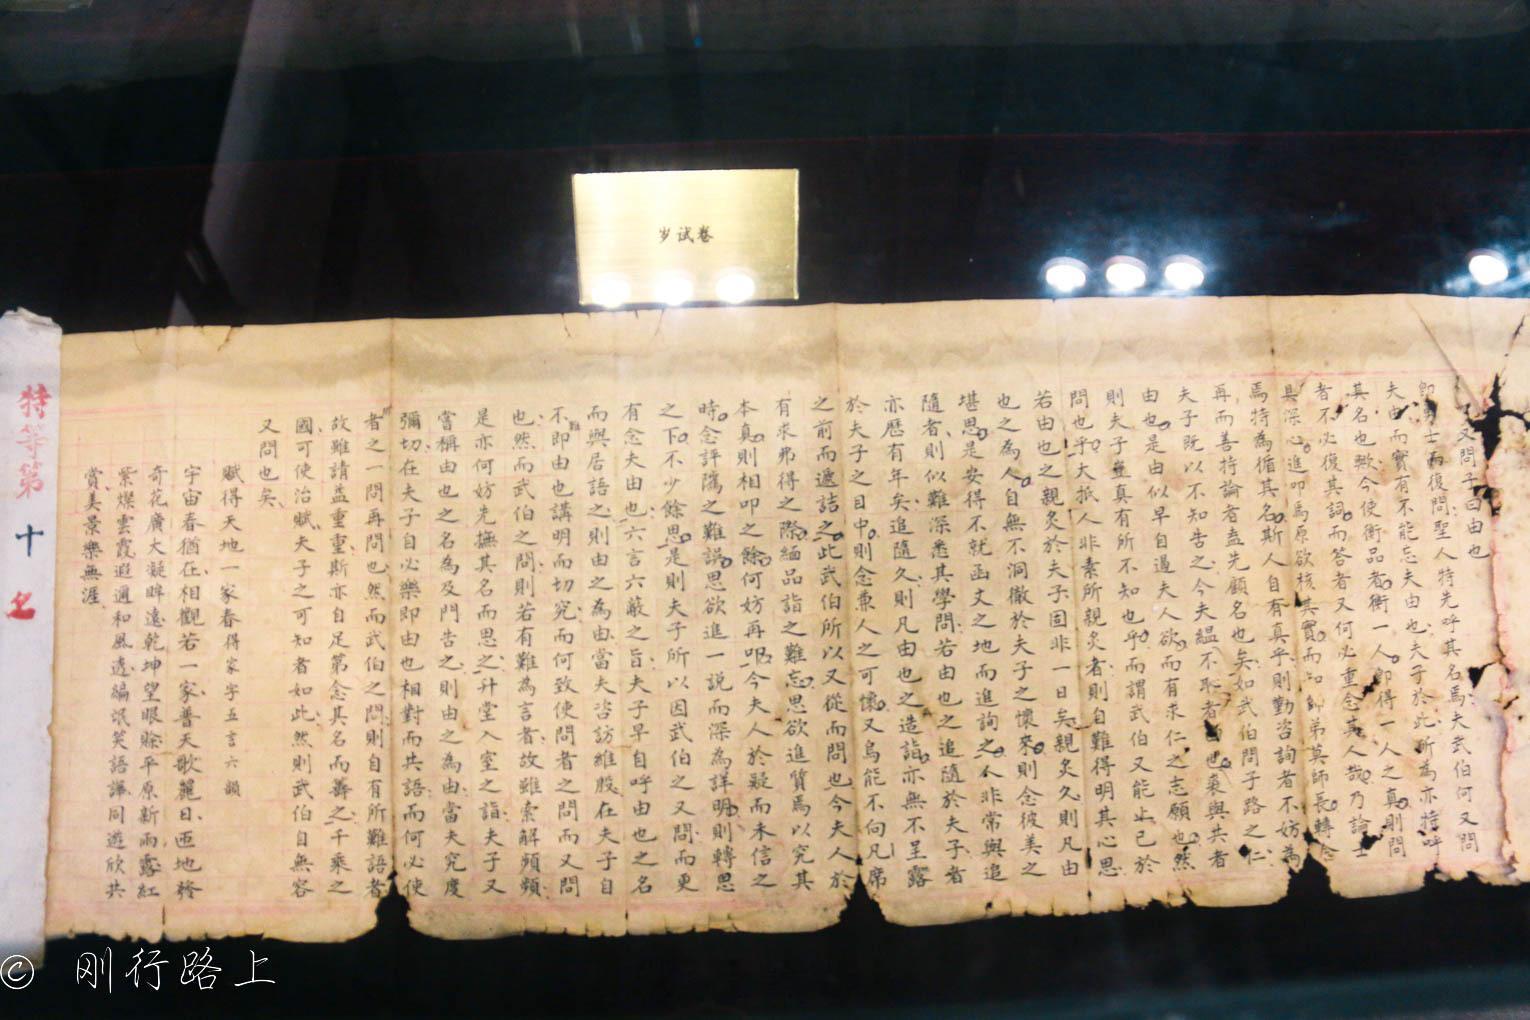 岁试卷
又問子曰由也
士而復問聖人特先呼其名焉夫武伯何又問
夫由而實有不能忘夫由也夫子於此所為亦特呼
其名也歟今使衡品者衡一人即得一人之真則問
者不必復其詞而答者又何必重念其人哉乃論士
具深心進叩焉原欲核其實而知師弟莫師長轉念
焉特為循其名斯人自有真乎則勤咨詢者不妨為
再而善持論者盍先顧名也矣如武伯問子路之仁
夫子既以不知告之今夫縕不恥者由也裘與共者
由也是由似早自過夫人欲而有求仁之志願也然
則夫子豈真有所不知也乎而謂武伯又能止已於
問也乎大抵人非素所親炙者則自難得明其心思
若由也之親炙於夫子固非一日矣親炙久則凡由
也之為人自無不洞徹於夫子之懷來則念彼美之
堪思是安得不就函丈之地而進詢之人非常與追
隨者則似難深悉其學問若由也之追隨於夫子者
亦歷有年矣追隨久則凡由也之造詣亦無不呈露
於夫子之目中則念兼人之可懷又烏能不向几席
之前而遞詰之此武伯所以又從而問也今夫人於
有求弗得之際緬品詣之難忘思欲進質焉以究其
本真則相叩之餘何妨再叩今夫人於疑而未信之
時念評隲之難誤思欲進一說而深為詳明則轉思
之下不少餘思是則夫子所以因武伯之又問而更
有念夫由也六言六蔽之旨夫子早自呼由也之名
而與居語之則由之為由當夫咨訪維殷在夫子自
不難即由也講明而切究而何致使問者之問而又問
也然而武伯之問則若有難為言者故雖索解頻頻
是亦何妨先撫其名而思之升堂入室之詣夫子又
嘗稱由也之名為及門告之則由之為由當夫究度
彌切在夫子自必樂即由也相對而共語而何必使
者之一問再問也然而武伯之問則自有所難語者
故雖請益重重斯亦自足第念其名而籌之千乘之
國可使治賦夫子之可知者如此然則武伯自無容
又問也矣
賦得天地一家春得家字五言六韻
宇宙春猶在相觀若一家普天歌麗日匝地發
奇花廣大凝眸遠乾坤望眼賒平原新雨露紅
紫燦雲霞遐邇和風透編氓笑語譁同遊欣共
賞美景樂無涯
特等第十名
© 刚行路上